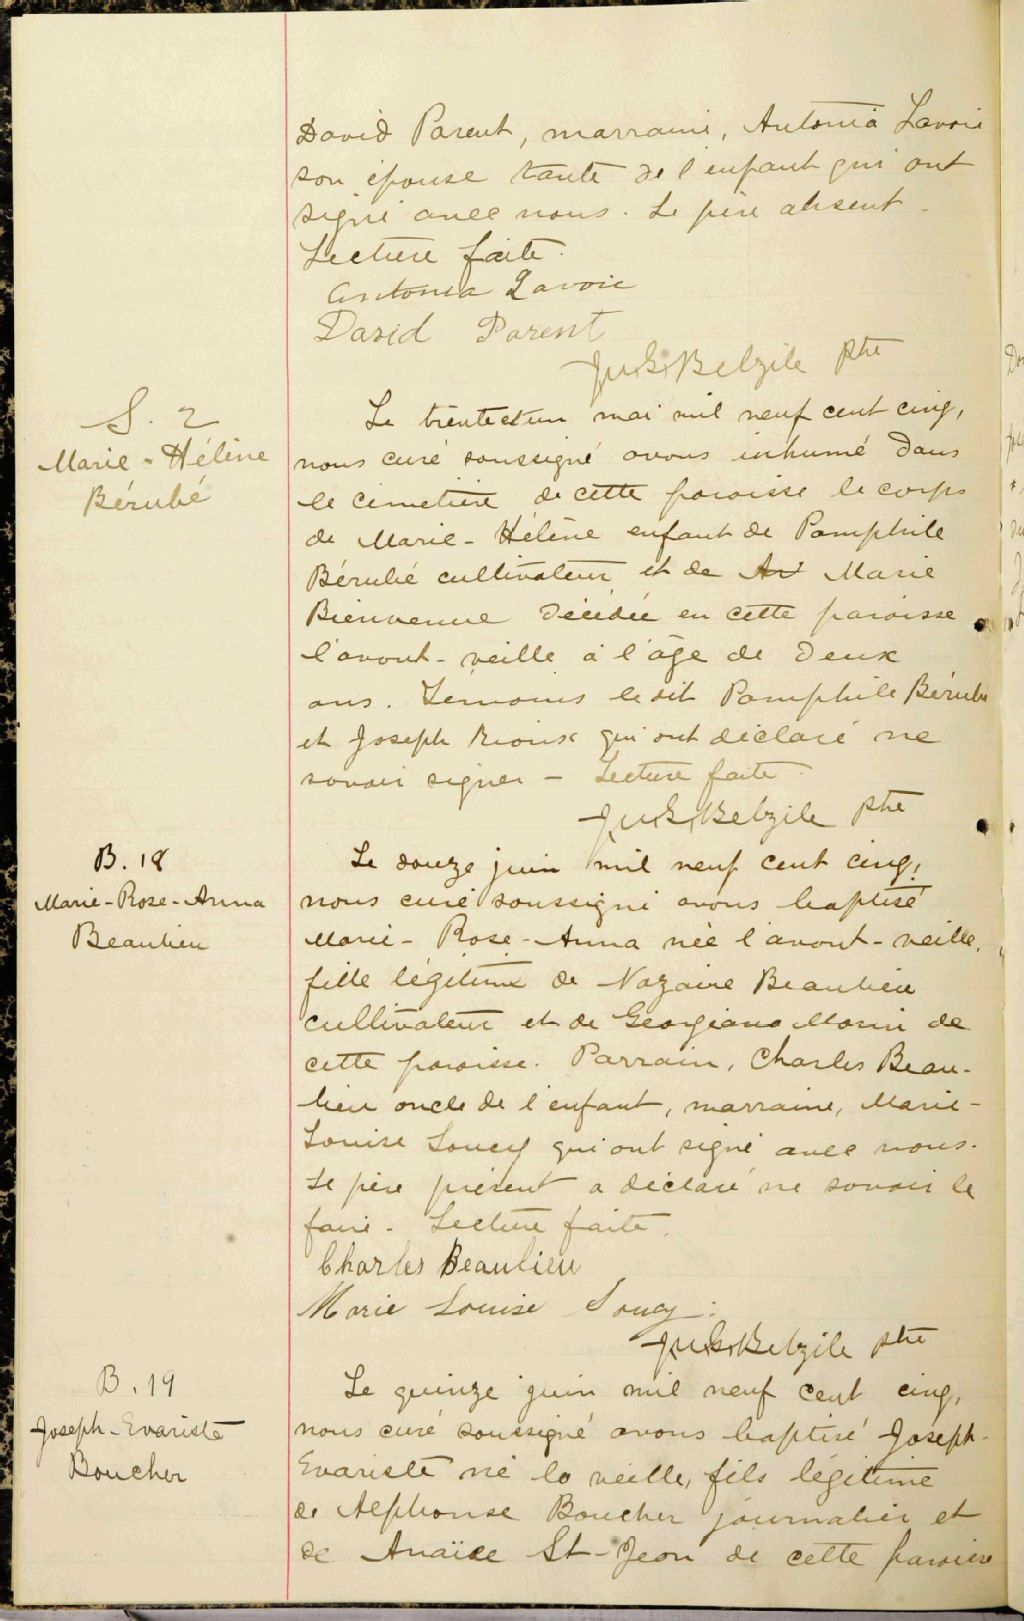 David Parent, marraine, Antonia Lavoie
son épouse tante de l'enfant qui ont
signé avec nous. Le père absent.
Lecture faite.
Antonia Lavoie
David Parent
Belzile ptre
S. 2
Marie-Hélène
Bérubé
Le trente et un mai mil neuf cent cinq,
nous curé soussigné avons inhumé dans
le cimetière de cette paroisse le corps
de Marie-Hélène enfant de Pamphile
Bérubé cultivateur et de Marie
Bienvenue décédée en cette paroisse
l'avant-veille à l'âge de deux
ans. Témoins le dit Pamphile Bérubé
et Joseph Rioux qui ont déclaré ne
savoir signer - Lecture faite.
Belzile ptre
B. 18
Marie-Rose-Anna
Beaulieu
Le douze juin mil neuf cent cinq,
nous curé soussigné avons baptisé
Marie-Rose-Anna née l'avant-veille,
fille légitime de Nazaire Beaulieu
cultivateur et de Georgiana Morin de
cette paroisse. Parrain, Charles Beau-
lieu oncle de l'enfant, marraine, Marie-
Louise Soucy qui ont signé avec nous.
Le père présent a déclaré ne savoir le
faire. Lecture faite.
Charles Beaulieu
Marie Louise Soucy
Belzile ptre
B. 19
Joseph-Evariste
Boucher
Le quinze juin mil neuf cent cinq,
nous curé soussigné avons baptisé Joseph-
Evariste né la veille, fils légitime
de Alphonse Boucher journalier et
de Anaïse St-Jean de cette paroisse